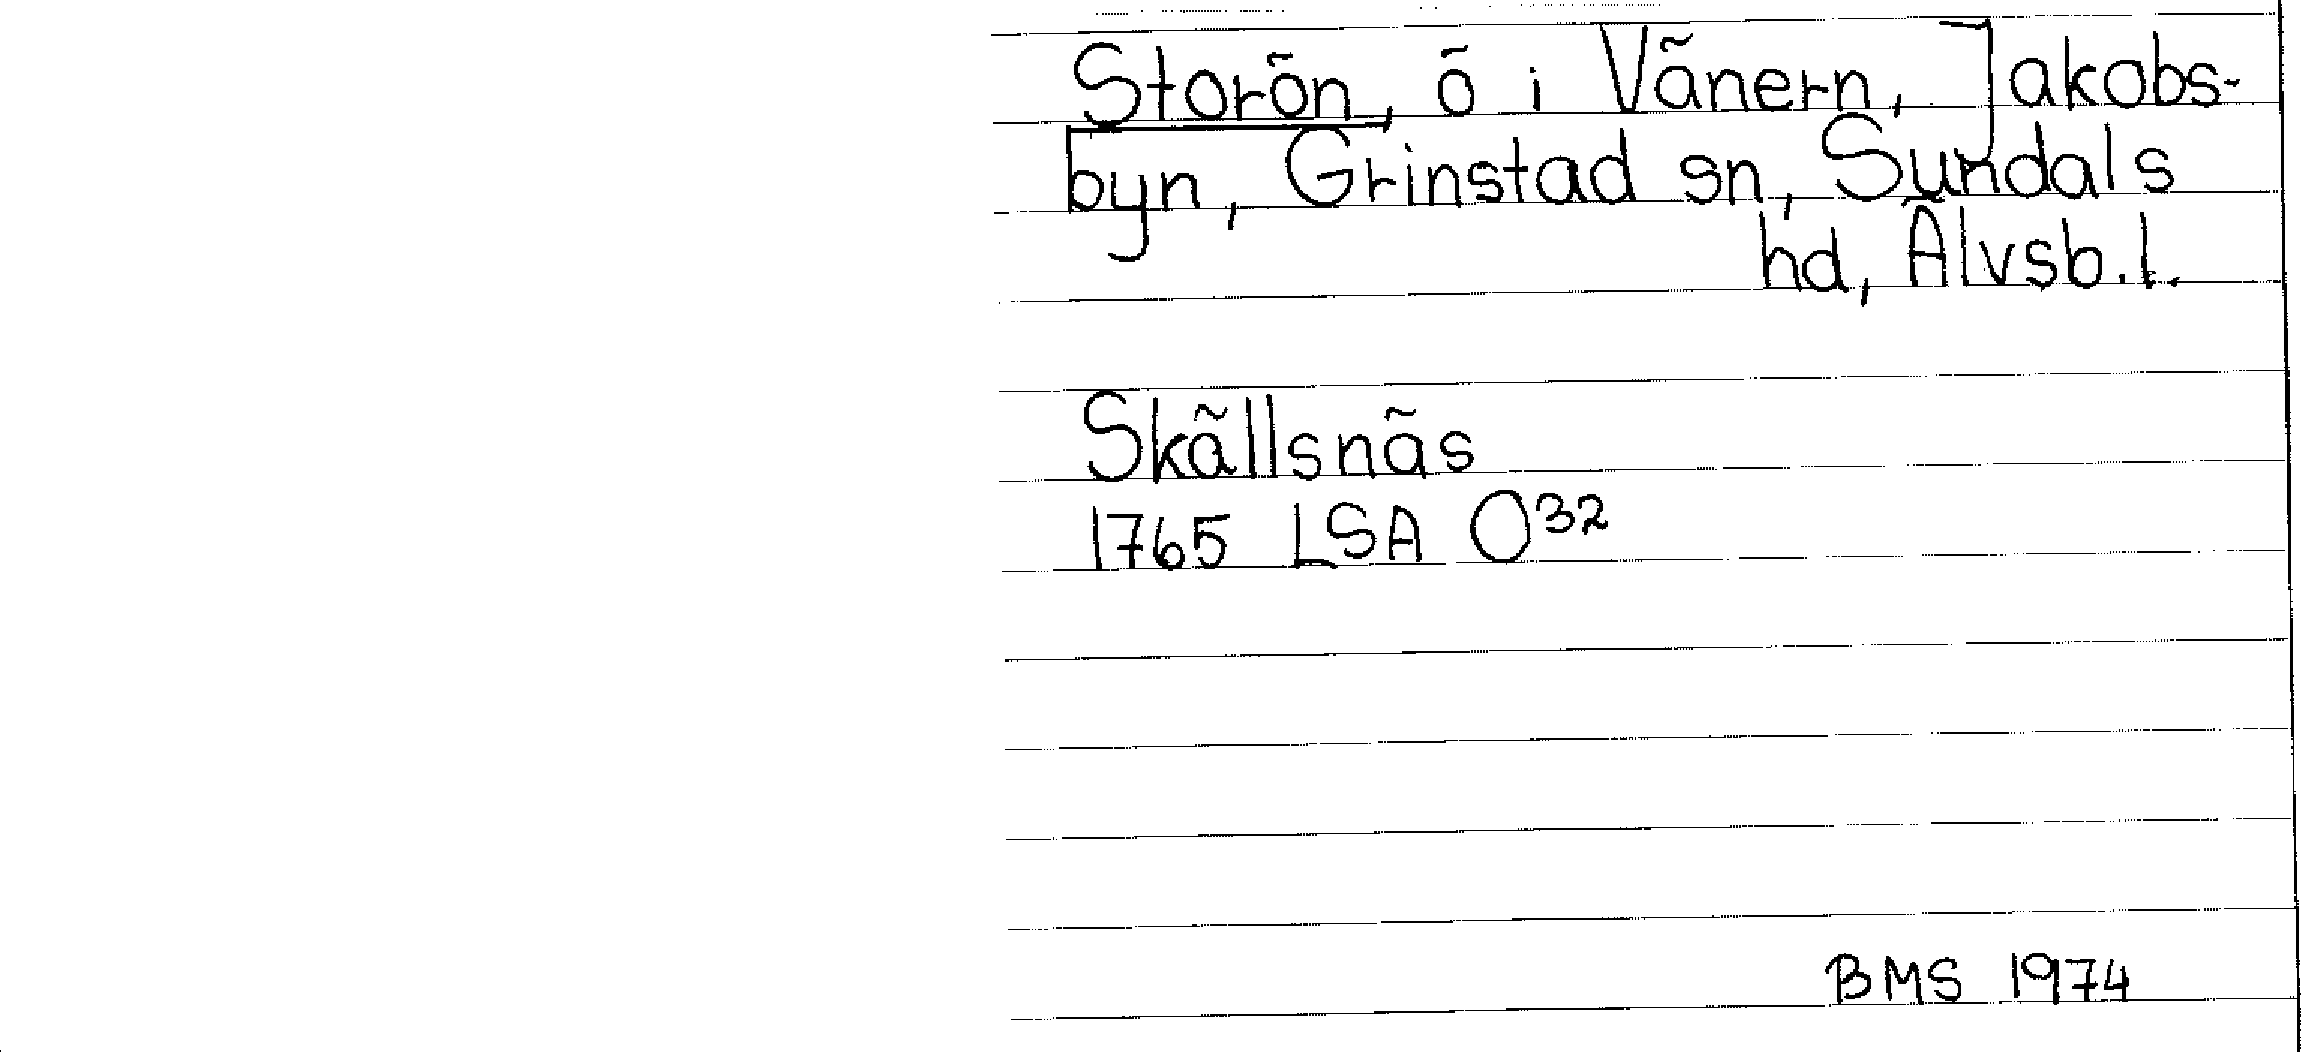 Storön, ö i Vänern, Jakobs-
byn, Grinstad sn, Sundals
hd, Älvsb. l.
Skällsnäs
1765 LSA O32
BMS 1974